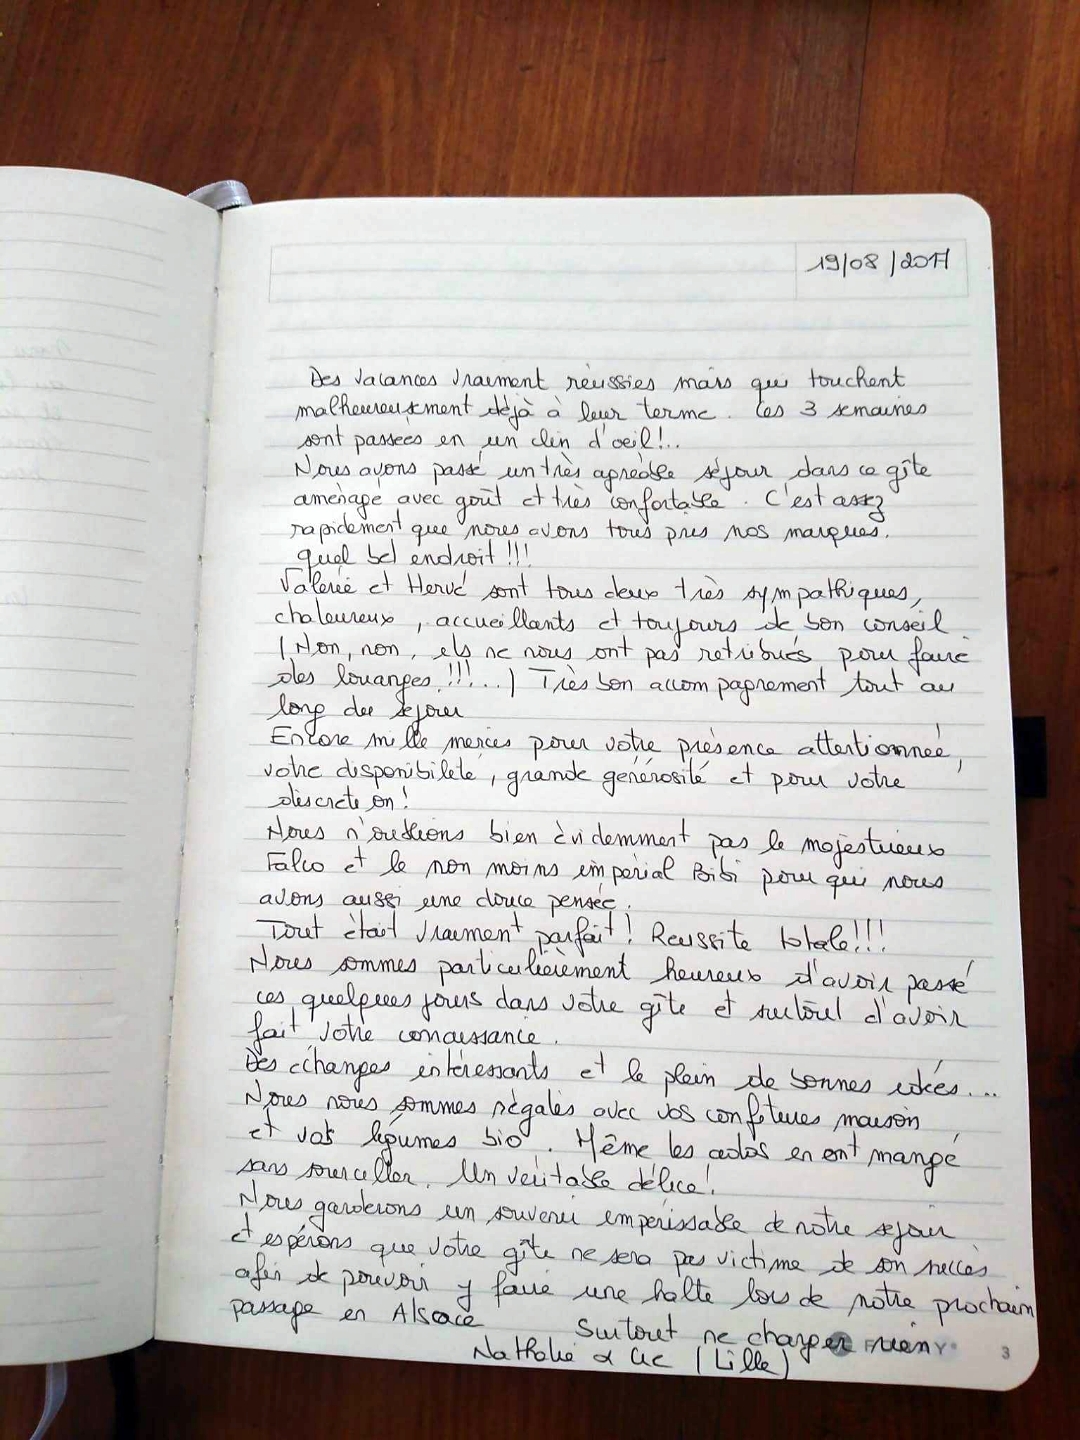 19/08/2017
Des vacances vraiment réussies mais qui touchent
malheureusement déjà à leur terme. Les 3 semaines
sont passées en un clin d'oeil!..
Nous avons passé un très agréable séjour dans ce gîte
aménagé avec goût et très confortable. C'est assez
rapidement que nous avons tous pris nos marques.
Quel bel endroit !!!
Valérie et Hervé sont tous deux très sympathiques,
chaleureux, accueillants et toujours de bon conseil
(Non, non, ils ne nous ont pas rétribués pour faire
des louanges !!!...) Très bon accompagnement tout au
long du séjour
Encore mille mercis pour votre présence attentionnée,
votre disponibilité, grande générosité et pour votre
discrétion!
Nous n'oublions bien évidemment pas le majestueux
Falco et le non moins impérial Bibi pour qui nous
avons aussi une douce pensée.
Tout était vraiment parfait! Réussite totale!!!
Nous sommes particulièrement heureux d'avoir passé
ces quelques jours dans votre gîte et surtout d'avoir
fait votre connaissance.
Des échanges intéressants et le plein de bonnes idées...
Nous nous sommes régalés avec vos confitures maison
et vos légumes bio. Même les ados en ont mangé
sans sourciller. Un véritable délice!
Nous garderons un souvenir impérissable de notre séjour
et espérons que votre gîte ne sera pas victime de son succès
afin de pouvoir y faire une halte lors de notre prochain
passage en Alsace Surtout ne changer rien
Nathalie & (Lille)
3